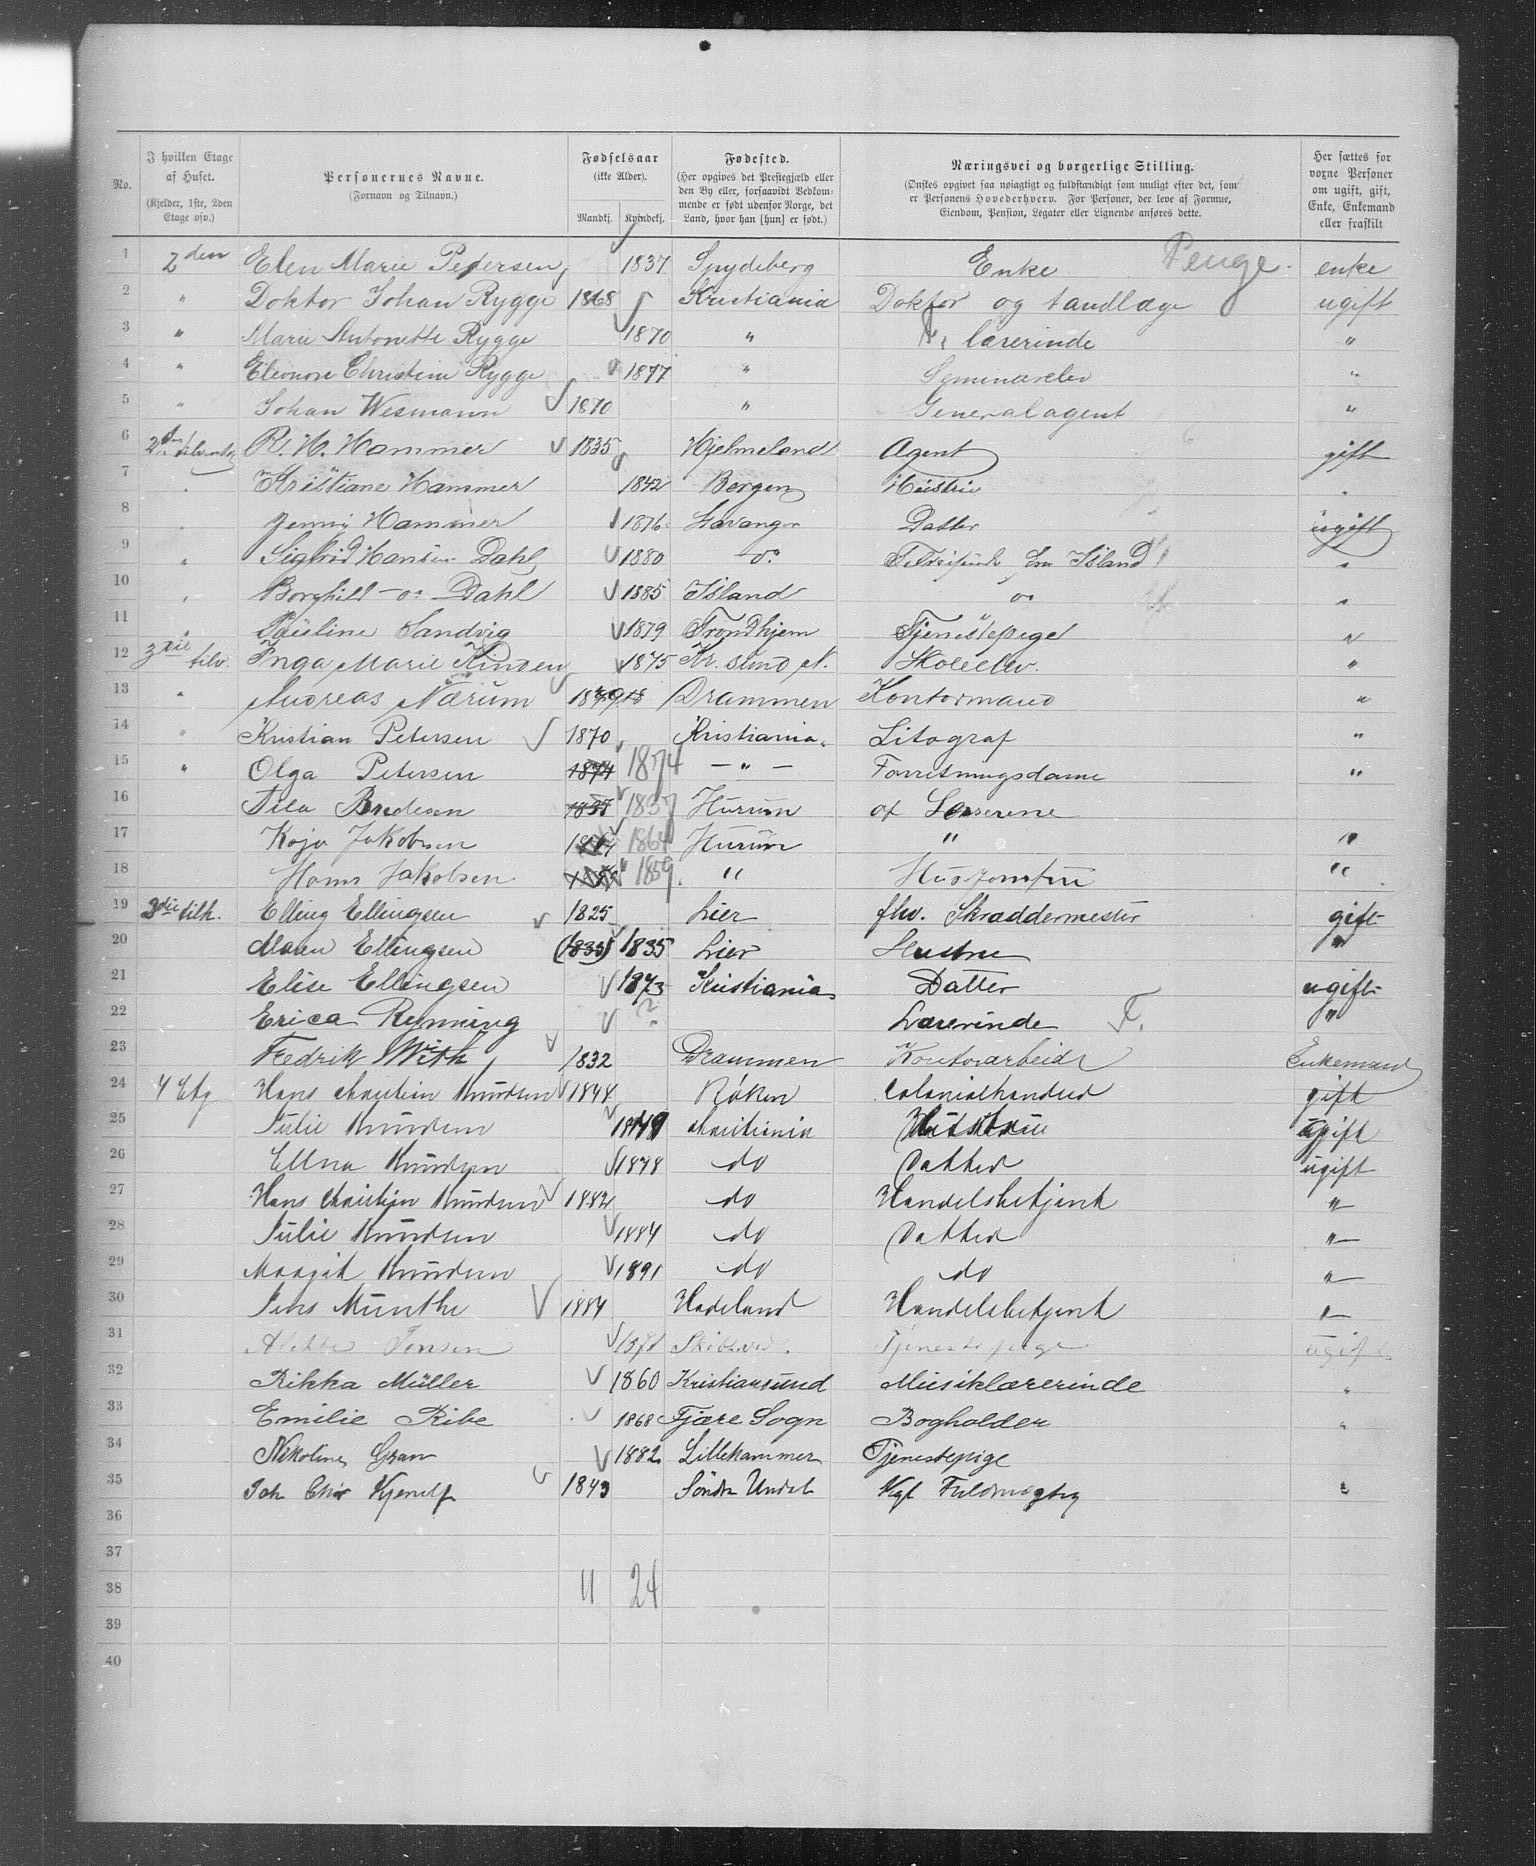 No.
I hvilken Etage af Huset. (Kjelder, 1ste, 2den Etage osv.)
Personernes Navne. (Fornavn og Tilnavn.)
Fødselsaar (ikke Alder). Mandkj. Kvindekj.
Fødested. (Her opgives det Prestegjæld eller den By eller, forsaavidt Vedkommende er født udenfor Norge, det Land, hvor han [hun] er født.)
Næringsvei og borgerlige Stilling. (Ønskes opgivet saa nøiagtigt og fuldstændigt som muligt efter det, som er Personens Hovederhverv. For Personer, der leve af Formue, Eiendom, Pension, Legater eller Lignende anføres dette.
Her sættes for voxne Personer om ugift, gift, Enke, Enkemand eller fraskilt
1 2den Elen Marie Pedersen 1837 Spydeberg Enke Penge. enke
2 " Doktor Johan Rygge 1868 Kristiania Doktor og tandlæge ugift
3 " Marie Antonette Rygge 1870 " lærerinde "
4 " Eleonore Christine Rygge 1877 " Seminarelev "
5 " Johan Wesmann 1870 " Generalagent "
6 2den R. H. Hammer 1835 Hjelmeland Agent gift
7 " Kristiane Hammer 1842 Bergen Hustru "
8 " Jenny Hammer 1876 Stavanger Datter ugift
9 " Sigfrid Hansen Dahl 1880 — do fra Island "
10 " Borghild — do — Dahl 1885 Island do "
11 Pauline Sandvig 1879 Trondhjem Tjenestepige "
12 3die tilv. Inga Marie Kinden 1875 Kr. sund N. Skoleelev. "
13 " Andreas Nærum 1879 Drammen Kontormand "
14 " Kristian Petersen 1870 Kristiania. Litograf "
15 " Olga Petersen 1874 1874 — " — Forretningsdame "
16 Bredesen 1837 1837 Hurum
17 Kaja Jakobsen 1864 Hurum " "
18 Hans Jakobsen 1859. " Husjomfru "
19 3die tilh. Elling Ellingsen 1825 Lier fhv. Skræddermester gift
20 Maren Ellingsen (1835) 1835 Lier Hustru "
21 Elise Ellingsen 1873 Kristiania Datter ugift
22 Erica Rynning ? Lærerinde F. "
23 Fredrik With 1832 Drammen Kontorarbeide Enkemand
24 4 Etg Hans Christian Knudsen 1848 Røken Colonialhandler gift
25 Julie Knudsen 1849 Christiania Hustru gift
26 Ellna Knudsen 1878 do Datter ugift
27 Hans Christian Knudsen 1882 do Handelsbetjent "
28 Julie Knudsen 1884 do Datter "
29 Margit Knudsen 1891 do do "
30 Jens Munthe 1884 Hadeland Handelsbetjent "
31 Jensen 1871 Tjenestepige ugift
32 Rikka Müller 1860 Kristiansund Musiklærerinde "
33 Emilie Ribe 1868 Fjære Sogn Bogholder "
34 Nikoline Gran 1882 Lillehammer Tjenestepige
35 Joh Chr Kjenslf 1843 Søndr Undal Kgl Fuldmægtig "
36
37
38 11 24
39
40